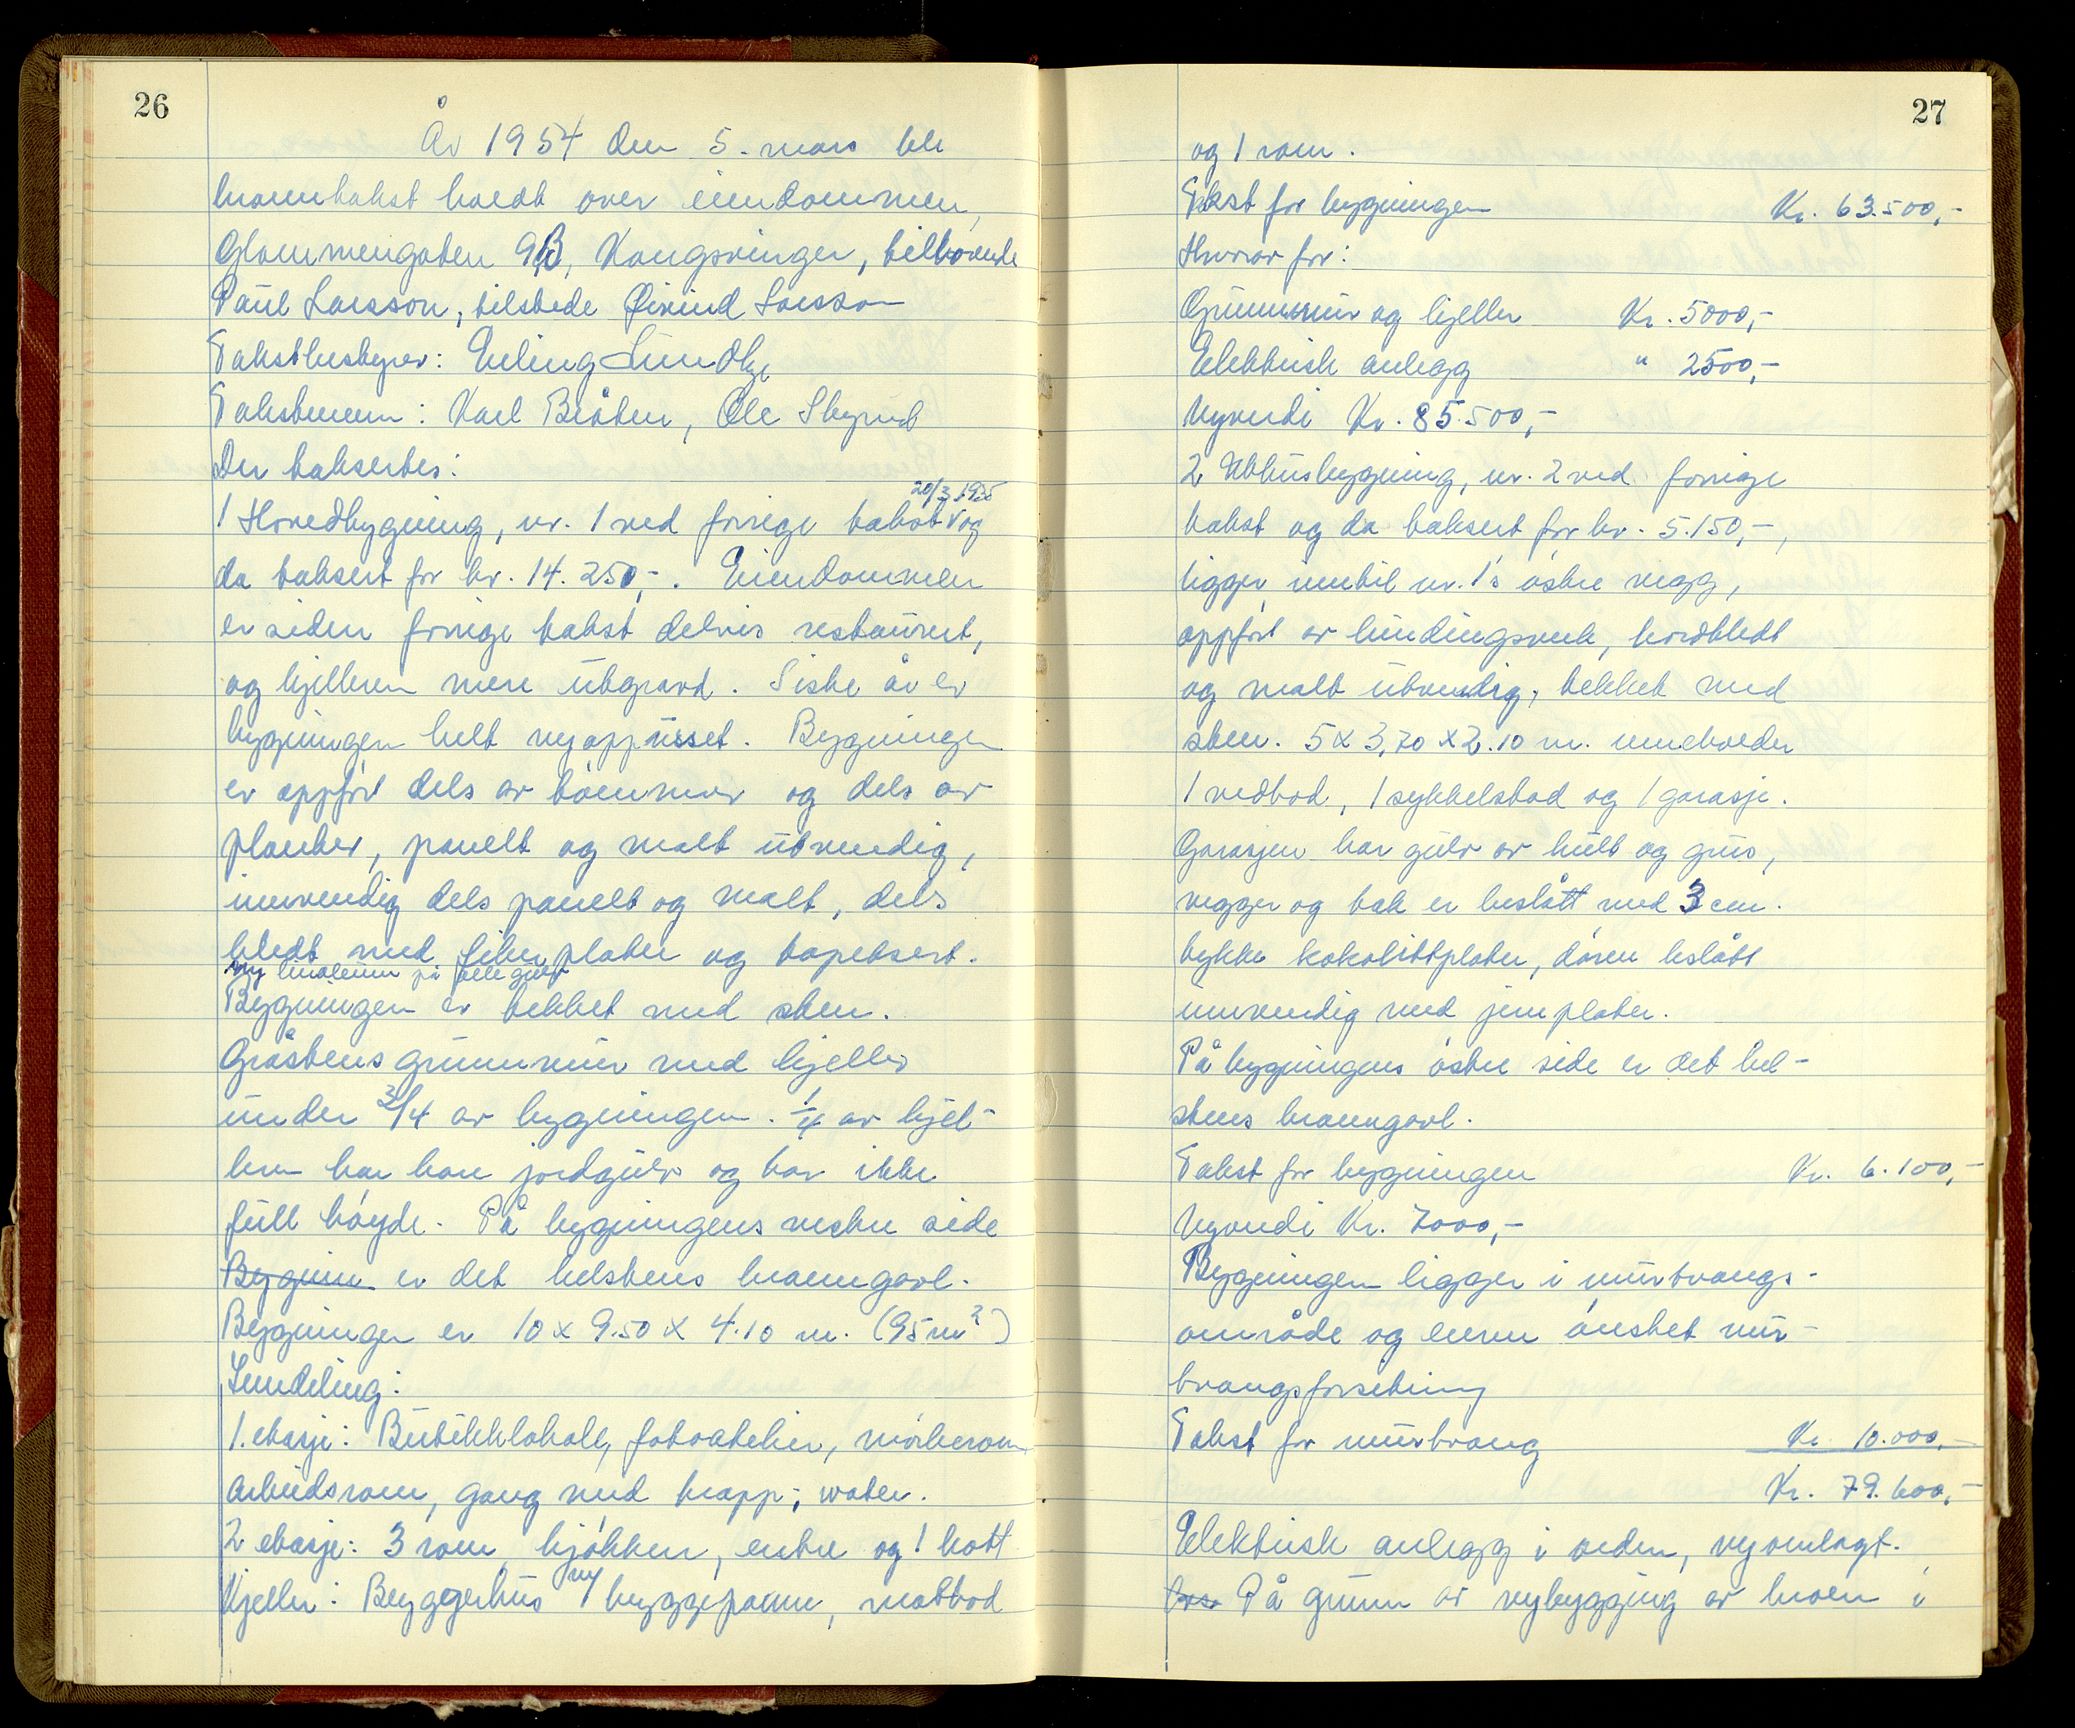 26
År 1954 den 5. mars ble
branntakst holdt over eiendommen,
Glommengaten 9B, Kongsvinger, tilhørende
Paul Larsson, tilstede Øivind Larsson
Takstbestyrer: Erling Lundby
Takstmenn: Karl Bråten, Ole Skyrud
Der taksertes:
20/3 1935
1 Hovedbygning, nr. 1 ved forrige takst og
da taksert for kr. 14.250,-. Eiendommen
er siden forrige takst delvis restaurert,
og kjelleren mere utgravd. Siste år er
bygningen helt nyoppusset. Bygningen
er oppført dels av tømmer og dels av
planker, panelt og malt utvendig,
innvendig dels panelt og malt, dels
kledt med fiberplater og tapetsert.
ny linoleum på alle gulv
Bygningen er tekket med sten.
Gråstens grunnmur med kjeller
under 3/4 av bygningen. 1/4 av kjel-
leren har bare jordgulv og har ikke
full høyde. På bygningens vestre side
Bygnin er det helstens branngavl.
Bygningen er 10 x 9.50 x 4.10 m. (95m2)
Inndeling:
1. etasje: Butikklokale, fotoatelier, mørkerom
arbeidsrom, gang med trapp, water.
2 etasje: 3 rom, kjøkken, entre og 1 kott
Kjeller: Bryggerhus ny bryggepanne, matbod
27
og 1 rom.
Takst for bygningen Kr. 63.500,-
Hvorav for:
Grunnmur og kjeller Kr. 5000,-
Elektrisk anlegg " 2500,-
Nyverdi Kr. 85.500,-
2 Uthusbygning, nr. 2 ved forrige
takst og da taksert for kr. 5.150,-,
ligger inntil nr. 1's østre vegg,
oppført av bindingsverk, bordkledt
og malt utvendig, tekket med
sten. 5 x 3,70 x 2.10 m. inneholder
1 vedbod, 1 sykkelstad og 1 garasje.
Garasjen har gulv av kult og grus,
vegger og tak er beslått med 3 cm.
tykke kokolittplater, døren beslått
innvendig med jernplater.
På bygningens østre side er det hel-
stens branngavl.
Takst for bygningen Kr. 6.100,-
Nyverdi Kr. 7000,-
Bygningen ligger i murtvangs-
område og eieren ønsket mur-
tvangsforsikring
Takst for murtvang Kr. 10.000,-
Kr. 79.600,-
Elektrisk anlegg i orden, nyomlagt.
På grunn av nybygging av broen i